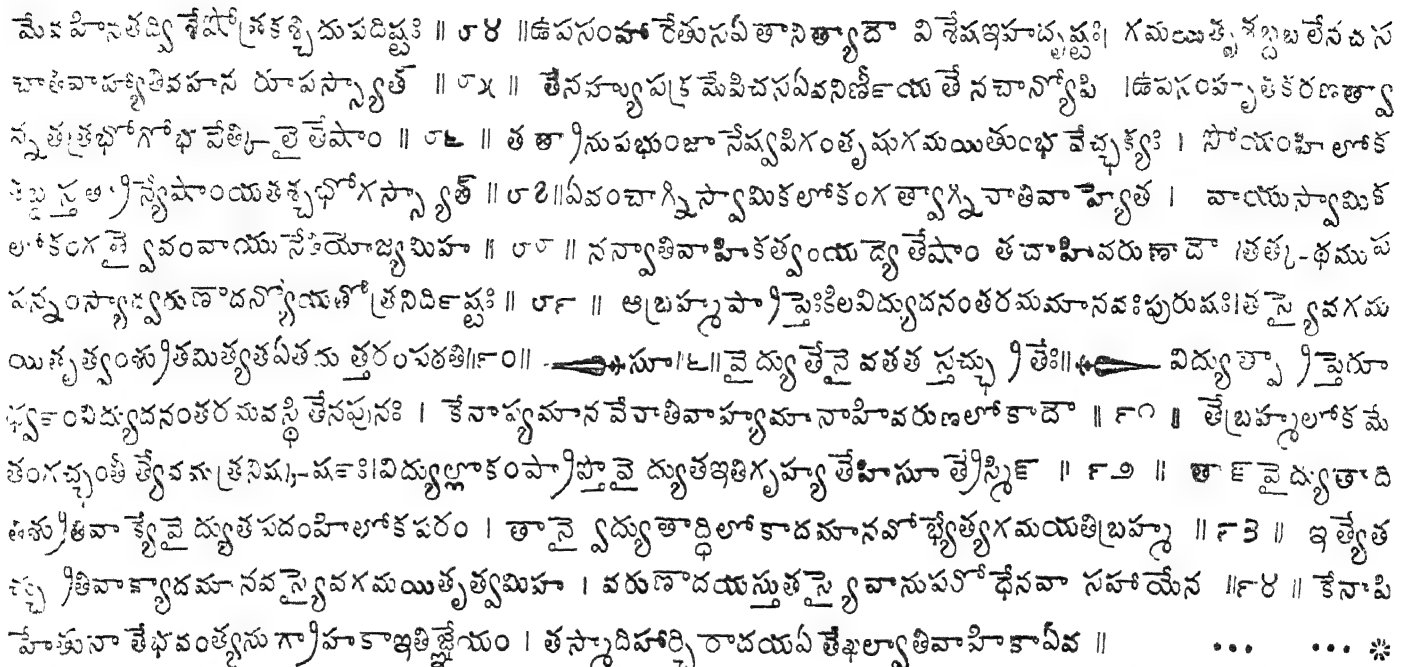 మేవ హినతద్వి శేషోత్రకశ్చిదుపదిష్టః ॥ ౮౪ ॥ఉపసంహా రేతుసఏ తానిత్యాదౌ విశేషఇహదృష్టః। గమయితృశబ్దబలేనచస
చాతివాహ్యాతివహన రూపస్స్యాత్ ॥ ౮౫ ॥ తేనహ్యుపక్ర మేపిచసఏవనిర్ణీయ తే నచాన్యోపి ।ఉపసంహృతికరణత్వా
న్నతత్రభోగోభ వేత్కి-లై తేషాం ॥ ౮౬ ॥ త త్రానుపభుంజా నేష్వపిగంతృషుగమయితుంభ వేచ్ఛక్యః । సోయంహి లోక
శబ్ద స్త త్రాన్యేషాంయతశ్చభోగస్స్యాత్ ॥ ౮౭॥ఏవంచాగ్నిస్వామికలోకంగ త్వాగ్ని నాతివా హ్యేత । వాయుస్వామిక
లోకంగ త్వై వంవాయు నేతియోజ్యమిహ ॥ ౮౮ ॥ నన్వాతివాహికత్వంయ ద్యే తేషాం తదాహివరుణాదౌ ।తత్క-థముప
పన్నంస్యాద్వరుణాదన్యోయతోత్రనిర్దిష్టః ॥ ౮౯ ॥ ఆబ్రహ్మప్రాప్తేఃకిలవిద్యుదనంతరమమానవఃపురుషః।త స్యైవగమ
యితృత్వంశ్రుతమిత్యతఏతదు త్తరంపఠతి॥౯౦॥ సూ।౬॥వైద్యుతేనై వతత స్తచ్ఛ్రుతేః॥ విద్యుత్ప్రా ప్తెరూ
ర్ధ్వంవిద్యుదనంతరమవస్థి తేనపునః । కేనాప్యమాన వేనాతివాహ్యమానాహివరుణలోకాదౌ ॥ ౯౧ ॥ తేబ్రహ్మలోక మే
తంగచ్ఛంతీ త్యేవమత్రనిష్క-ర్షః।విద్యుల్లోకంప్రాప్తోవై ద్యుతఇతిగృహ్య తేహిసూ త్రేస్మిన్ ॥ ౯౨ ॥ తా న్ వైద్యుతాది
తిశ్రుతివా క్యేవై ద్యుతపదంహిలోకపరం । తానై ద్వద్యుతాద్ధిలోకాదమానవోభ్యేత్యగమయతిబ్రహ్మ ॥ ౯౩ ॥ ఇ త్యేత
చ్ఛ్రుతివాక్యాదమానవ స్యైవగమయితృత్వమిహ । వరుణాదయస్తుత స్యై వానుపరోధేనవా సహాయేన ॥౯౪ ॥ కేనాపి
హేతునా తేభవంత్యను గ్రాహకాఇతిజ్ఞేయం । తస్మాదిహార్చిరాదయఏ తేఖల్వాతివాహికాఏవ ॥ ... ... ❋